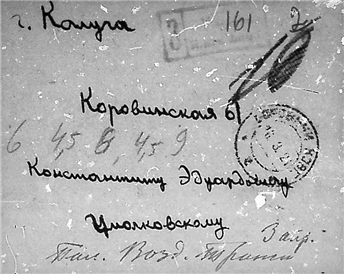 г. Калуга
161
Коровинская 61
6 4,5 8, 4,5 9
Константину Эдуардовичу
Циолковскому
Возд.